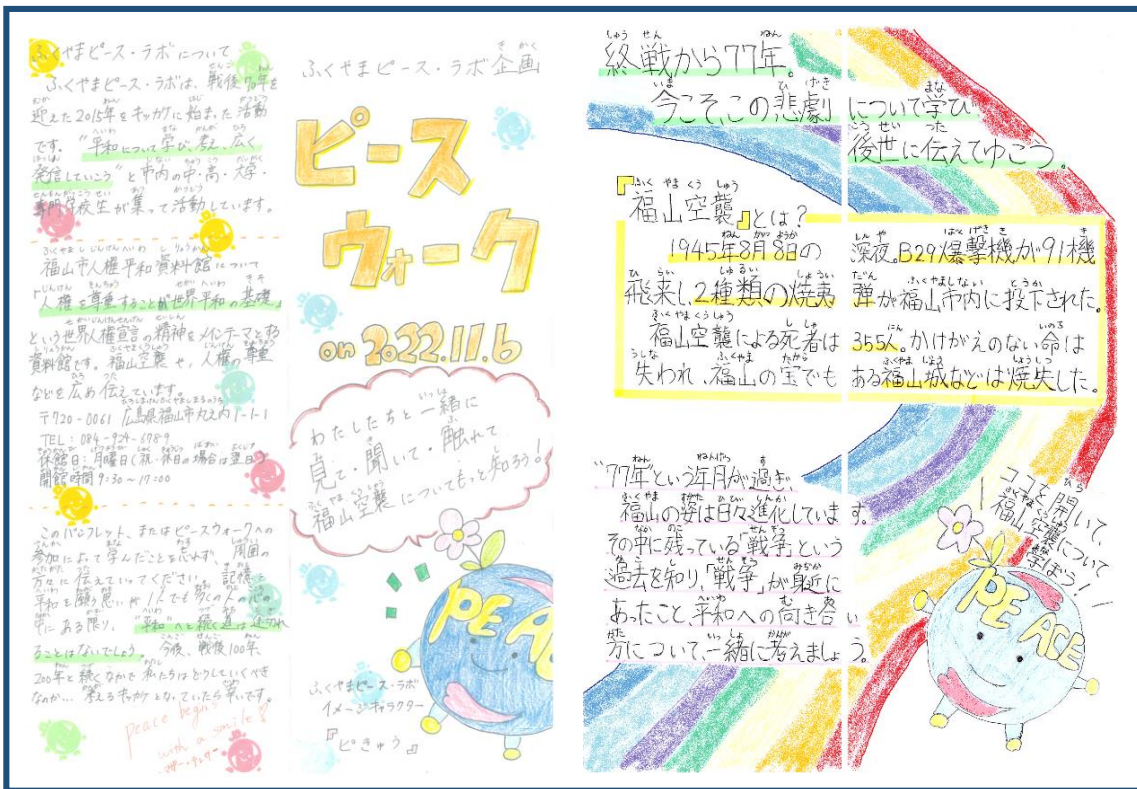 ふくやまピース・ラボについて
ふくやまピース・ラボは、戦後70年を
迎えた2015年をキッカケに始まった活動
です。"平和について学び、考え、広く
発信していこう"と市内の中・高・大学・
専門学校生が集って活動しています。
福山市人権平和資料館について
「人権を尊重することが世界平和の基礎」
という世界人権宣言の精神をメインテーマとする
資料館です。福山空襲や、人権の尊重
などを広め伝えています。
〒720-0061 広島県福山市丸之内1-1-1
TEL:084-924-6789
休館日:月曜日(祝・休日の場合は翌日)
開館時間9:30~17:00
このパンフレット、またはピースウォークへの
参加によって学んだことを忘れず、周囲の
方々に伝えていってください。記憶と
平和を願う思いが1人でも多くの人の心の
中にある限り、"平和"へと続く道は途切れ
ることはないでしょう。今後、戦後100年、
200年と続くなかで私たちはどうしていくべき
なのか…考えるキッカケとなっていたら幸いです。
Peace begins
with a smile!
マザー・テレサ
ふくやまピース・ラボ企画
ピース
ウォーク
on 2022.11.6
わたしたちと一緒に
見て・聞いて・触れて
福山空襲についてもっと知ろう!
PE
ふくやまピース・ラボ
イメージキャラクター
『ピきゅう』
終戦から77年。
今こそ、この悲劇について学び
後世に伝えてゆこう。
『福山空襲』とは?
1945年8月8日の深夜。B29爆撃機が91機
飛来し、2種類の焼夷弾が福山市内に投下された。
福山空襲による死者は355人。かけがえのない命は
失われ、福山の宝でもある福山城などは焼失した。
"77年"という年月が過ぎ、
福山の姿は日々進化しています。
その中に残っている「戦争」という
過去を知り、「戦争」が身近に
あったこと、平和への向き合い
方について、一緒に考えましょう。
ココを開いて、
福山空襲について
学ぼう!
PEACE